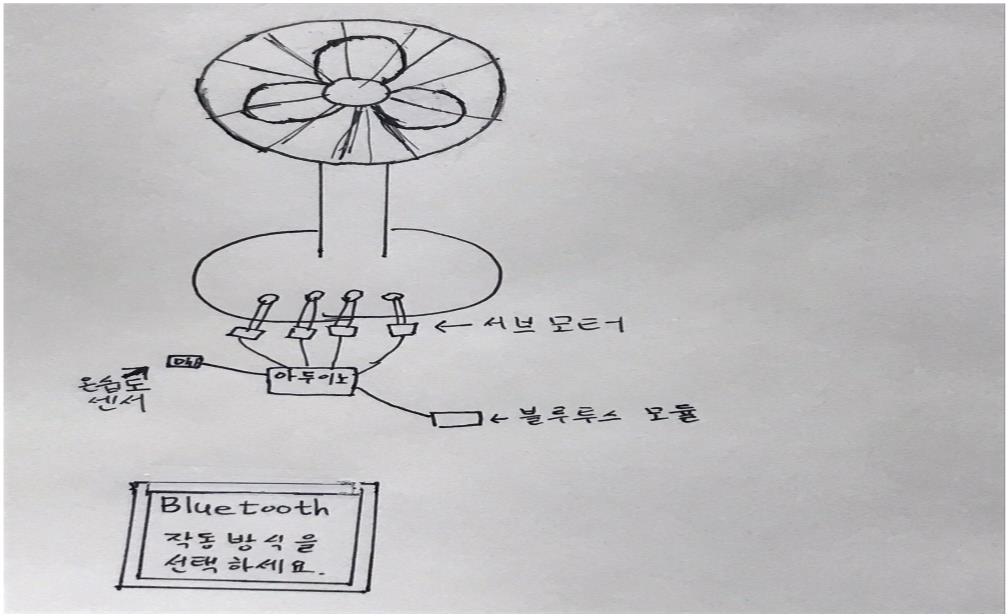 ← 서브모터
온습도
센서
아두이노
← 블루투스 모듈
Bluetooth
작동방식을
선택하세요.